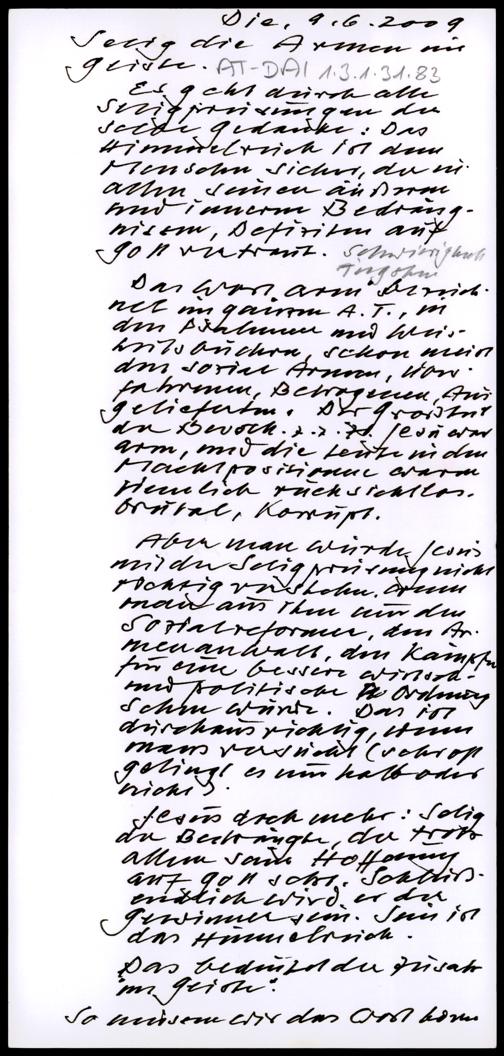 Die, 9.6.2009
Selig die Armen im
Geiste. AT-DAI 1.3.1.31.83
Es geht durch alle
Seligpreisungen der
selbe Gedanke: Das
Himmelreich ist dem
Menschen sicher, der in
allen seinen äußeren
und inneren Bedräng-
nissen, Defiziten auf
Gott vertraut. Schwierigkeiten
Das Wort arm bezeich-
net im ganzen A.T., in
den Psalmen und Weis-
heitsbüchern, schon meist
den sozial Armen, 
fahrenen, Betrogenen, Aus-
gelieferten. Der Großteil
der Bevölk. z. Z. Jesu war
arm, und die Leute in den
Machtpositionen waren
ziemlich rücksichtslos.
brutal, korrupt.
Aber man würde Jesus
mit der Seligpreisung nicht
richtig verstehen, wenn
man aus ihm nur den
Sozialreformer, den Ar-
menanwalt, den Kämpfer
für eine bessere wirtsch.
und politische Ordnung
sehen würde. Das ist
durchaus richtig, wenn
mans versucht (schroff
gelingt es nur halb oder
nicht).
Jesus doch mehr: Selig
der Bedrängte, der trotz
allem seine Hoffnung
auf Gott setzt. Schließ-
endlich wird er der
Gewinner sein. Sein ist
das Himmelreich.
Das bedeutet der Zusatz
"im Geiste".
So müssen wir das Wort